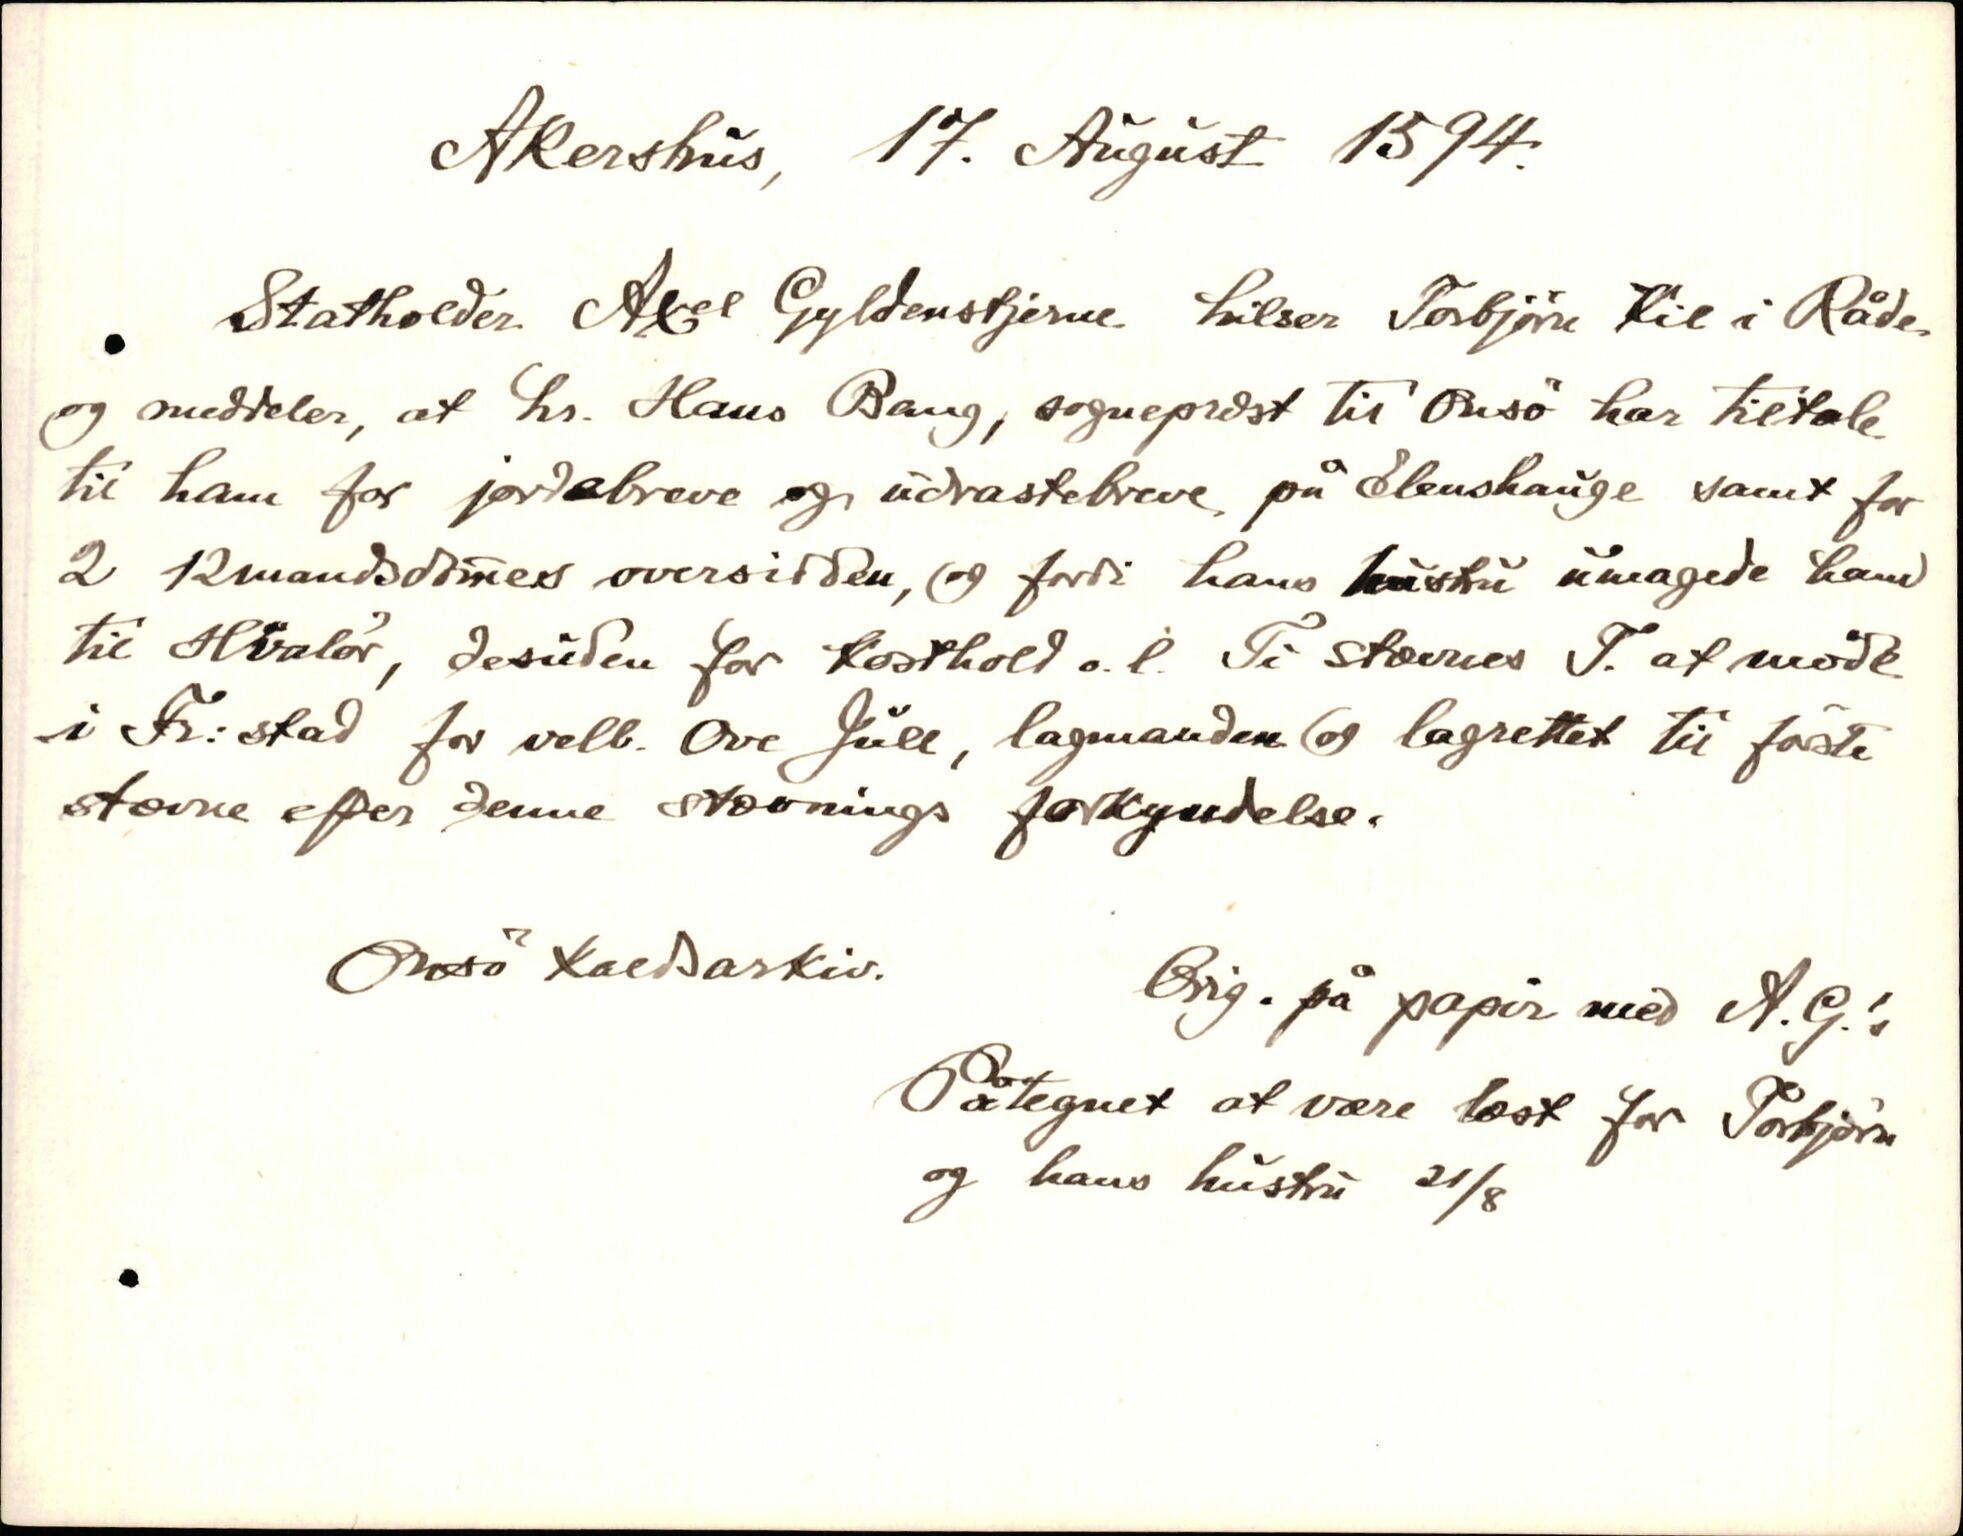 Akershus, 17. August 1594.
Statholder Axel Gyldenstjerne hilser Torbjörn Kil i Råde
og meddeler, at hr. Hans Bang, sogneprest til Onsö har tiltale
til ham for jordebreve og udrastebreve på Elenshauge samt for
2 12mandsdom̄es oversidden, og fordi hans hustru umagede ham
til Hvalör, desuden for kosthold o. l. Ti stævnes T. at möde
i Fr: stad for velb. Ove Juell, lagmanden og lagrettet til förste
stævne efter denne stævnings forkyndelse.
Onsö kaldsarkiv.
Orig. på papir med A. G.'s
Påtegnet at være læst for Torbjörn
og hans hustru 21/8